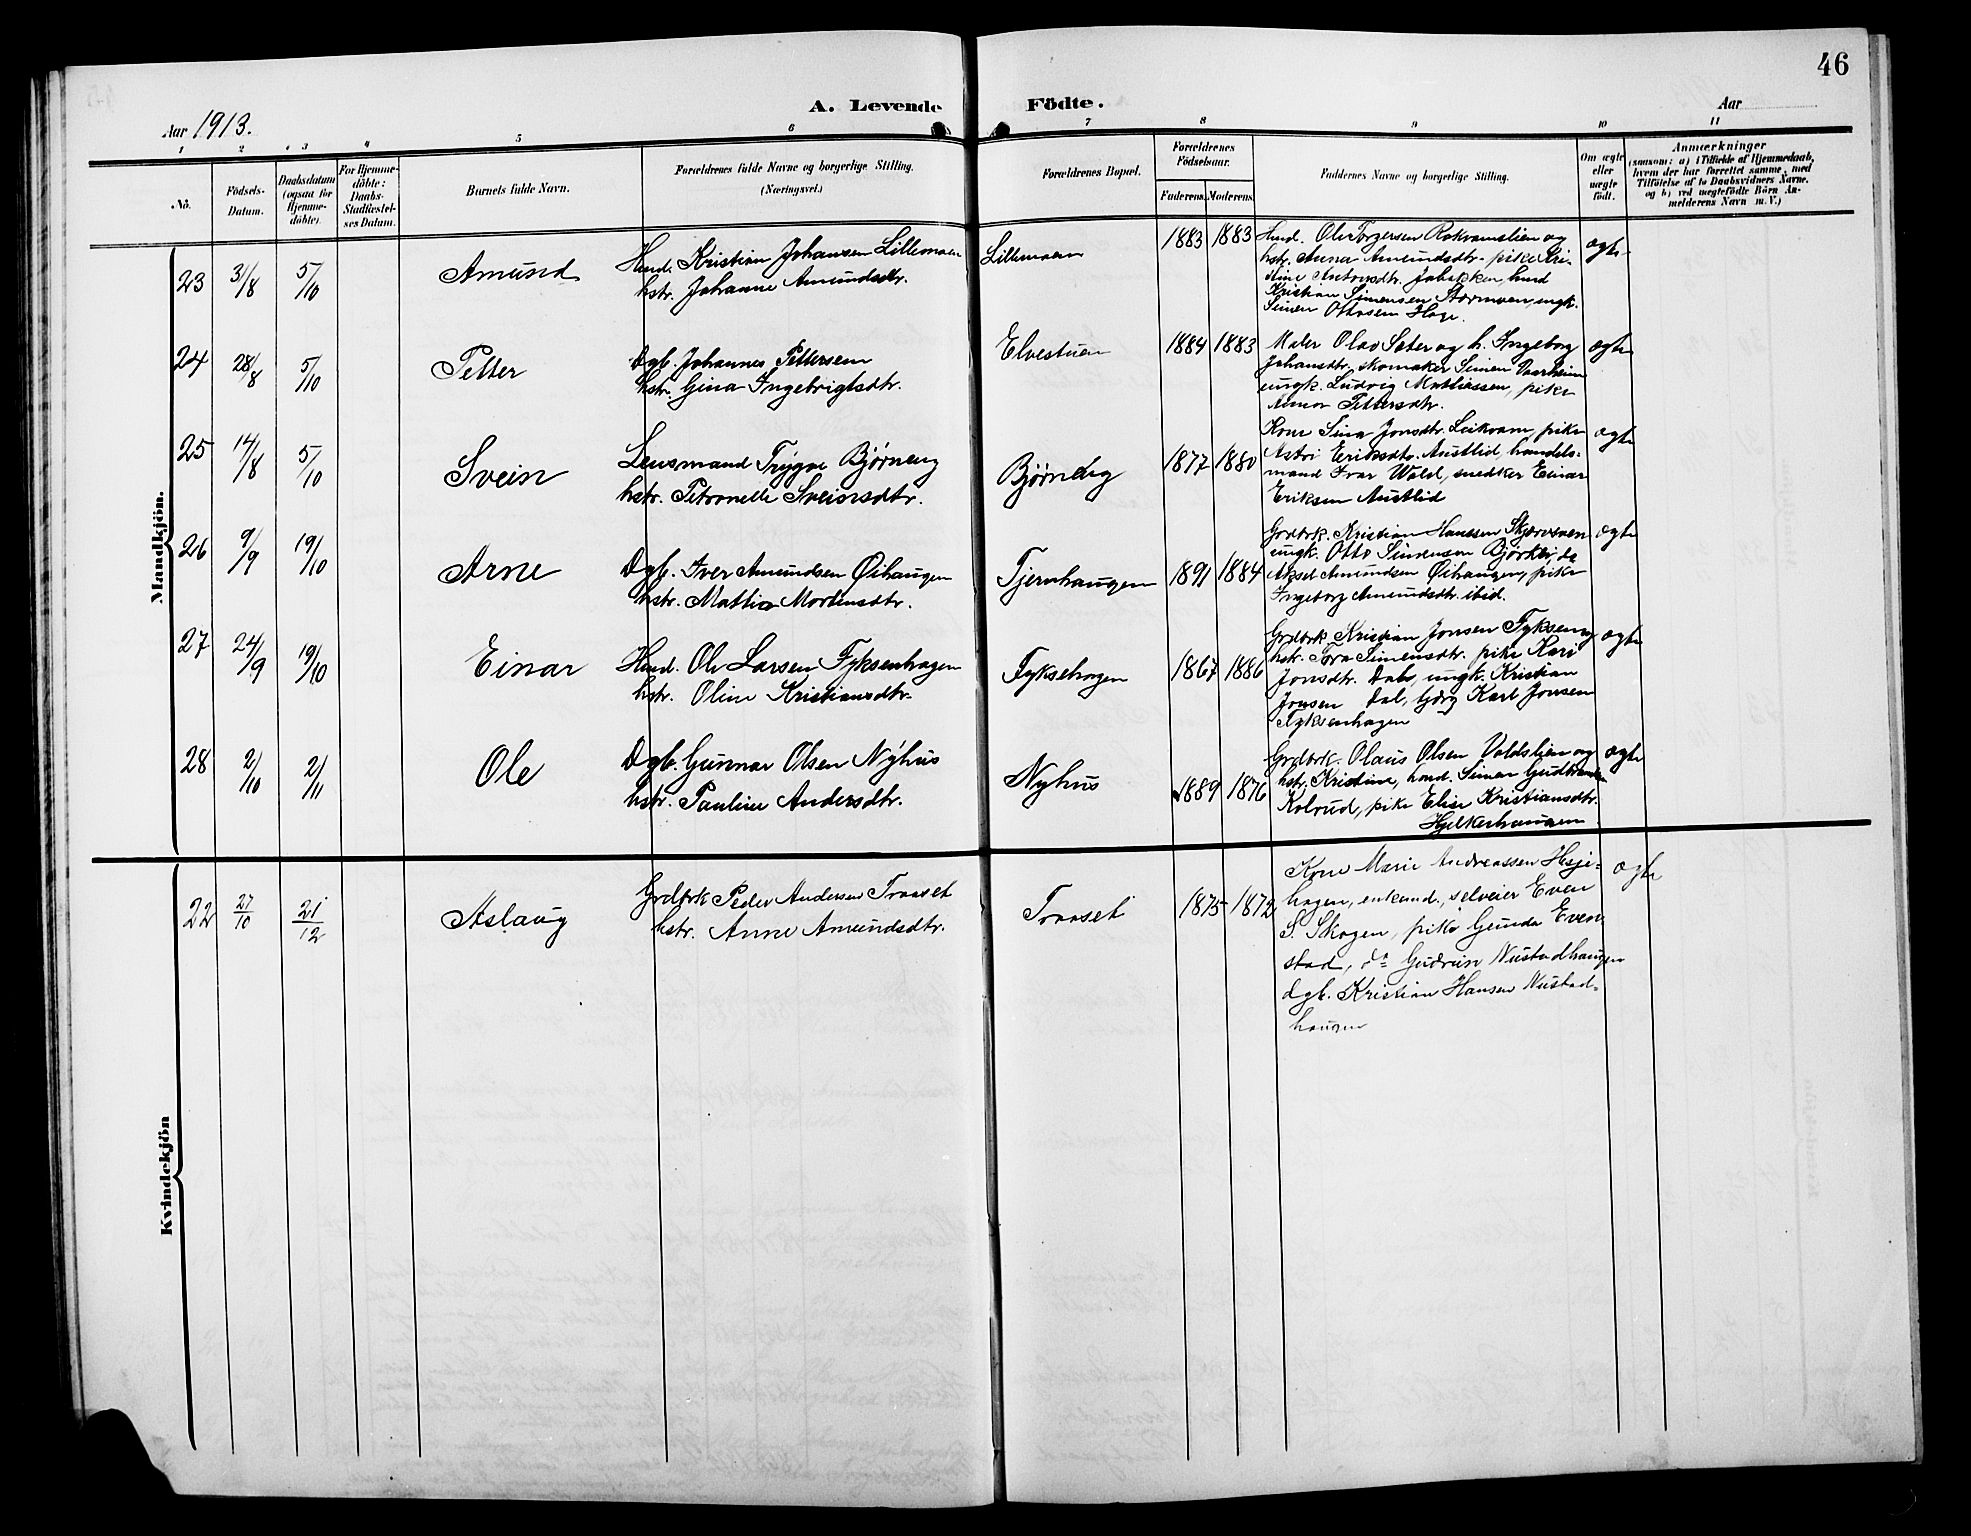 46
A. Levende Födte.
Aar 1913.
Aar
1 2 3 4 5 6 7 8 9 10 11
No.
Födsels-Datum.
Daabsdatum (ogsaa for Hjemme-döbte).
For Hjemme-döbte: Daabs-Stadfæstel-ses Datum.
Barnets fulde Navn.
Forældrenes fulde Navne og borgerlige Stilling. (Næringsvei.)
Forældrenes Bopæl.
Forældrenes Födselsaar.
Faderens. Moderens.
Faddernes Navne og borgerlig Stilling.
Om ægte eller uægte födt.
Anmærkninger
(saasom: a) i Tilfælde af Hjemmedaab, hvem der har forrettet samme, med Tilföielse af to Daabsvidners Navne, og b) ved uægtefödte Börn An-melderens Navn m. V.)
Mandkjön.
23 31/8 5/10 Amund
Hmd. Kristian Johansen Lillemoen
hstr. Johanne Amundsdtr.
Lillemoen 1883 1883
Hmd. Ole Torgersen Rokvamslien og
hstr. Anna Amundsdtr. pike
Antonsdtr. hmd
Kristian Simensen Stormoen, ungk.
Simen Ottosen Hage.
ægte
24 28/8 5/10 Petter
Dgb. Johannes Pettersen
hstr. Gina Ingebrigtsdtr.
Elvestuen 1884 1883
Maler Olav Sæter og h. Ingeborg
Johansdtr. skomaker Simen
ungk. Ludvig Mathiassen, pike
Pettersdtr.
ægte
25 14/8 5/10 Svein
Lensmand Trygve Bjørneng
hstr. Petronelle Sveinsdtr.
Bjørneng 1877 1880
Kone Sina Jonsdtr. Leikvam, pike
Astri Eriksdtr. Austlid, handels-
mand Ivar Wold, snedker Einar
Eriksen Austlid
ægte
26 9/9 19/10 Arne
Dgb. Iver Amundsen Øihaugen
hstr. Mathia Mortensdtr.
Tjernhaugen 1891 1884
Grdbrk. Kristian Hanssen
ungk. Otto Simensen
Aksel Amundsen Øihaugen, pike
Ingeborg Amundsdtr. ibid.
ægte
27 24/9 19/10 Einar
Hmd. Ole Larsen Fyksenhagen
hstr. Oline Kristiansdtr.
Fyksehagen 1867 1886
Grdbrk. Kristian Jonsen Fykseng
hstr. Tora Simensdtr. pike Kari
Jonsdtr. Dal, ungk. Kristian
Jonsen Dal, Karl Jonsen
Fyksenhagen
ægte
28 2/10 2/11 Ole
Dgb. Gunnar Olsen Nyhus
hstr. Pauline Andersdtr.
Nyhus 1889 1876
Grdbrk. Olaus Olsen Voldslien og
hstr. Kristine, hmd. Simen
Kolrud, pike Elise Kristiansdtr.
ægte
Kvindekjön
22 27/10 21/12 Aslaug
Grdbrk Peder Andersen Traaset
hstr. Anne Amundsdtr.
Traaset 1875 1872
Kone Marie Andreassen
hagen, enkemd., selveier Even
S. Skogen, pike Gunda Even-
stad, do Gudrun Nustadhaugen
dgb. Kristian Hansen Nustad-
haugen
ægte